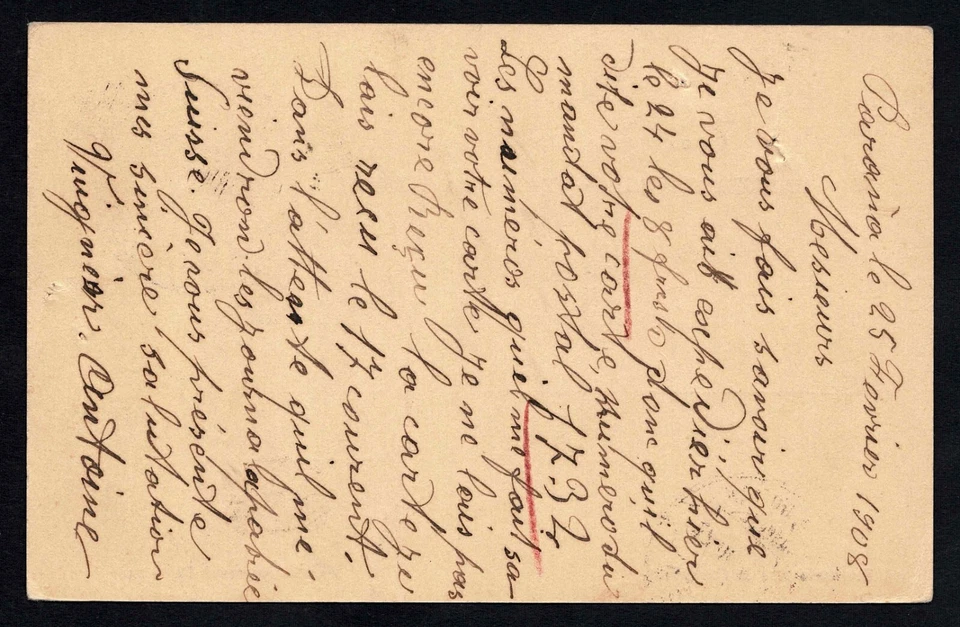 le 25 Fevrier 1908
Messieurs
Je vous fais savoir que
Je vous ait expedier hier
le 24 les 8 donc qu'il
cite votre carte, numero du
mandat postal 17.34
Les numéros quil me faut sa-
voir votre carte Je ne l'ois pas
encore Reçu la carte Je
lais recu le 17 courent.
Dans l'attente quil me
viendron les Journal
Suisse. Je vous présente
mes sincère salutation
Antoine